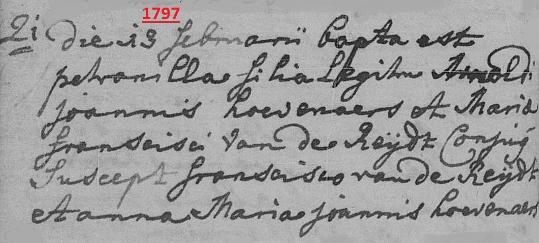 1797
2i die 13 februarii bapta est
petronilla filia Legitm Arnoldi
joannis hoevenaers et Maria
fransisci van de Reijdt Conjug
Suscept fransisco van de Reijdt
et anna Maria joannis hoevenaers